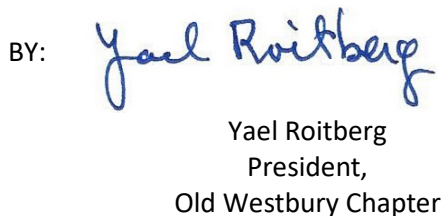 BY: Yael Roitberg
Yael Roitberg
President,
Old Westbury Chapter